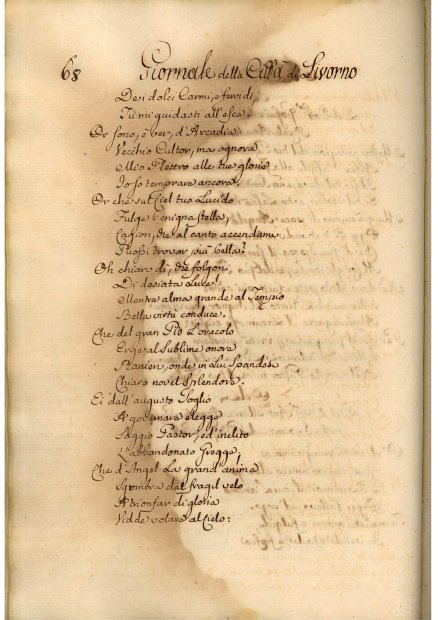 68 Giornale della Città di Livorno
De i dolci Carmi, e fervidi,
Tu mi guidasti all'esca.
Or sono, è ver, d'Arcadia
Vecchio Cultor, ma ognora
Mio Plettro alle tue glorie
Io fo temprare ancora.
Or che sul Ciel tuo Lucido
Fulge benigna stella,
Cagion, che al canto accendami
Puossi trovar più bella?
Oh chiaro dì, che folgori
Di desiata Luce!
Mentre alma grande al Tempio
Bella virtù conduce.
Che del gran Pio L'oracolo
Erge al Sublime onore
Ranieri, onde in Lui spandesi
Chiaro novel Splendore.
Ei dall'augusto Soglio
A governare elegge
Saggio Pastor, ed inclito
L'abbandonato Gregge,
Che d'Angel La grand'anima
Sgombra dal fragil velo
A trionfar di gloria
Vidde volare al Cielo: